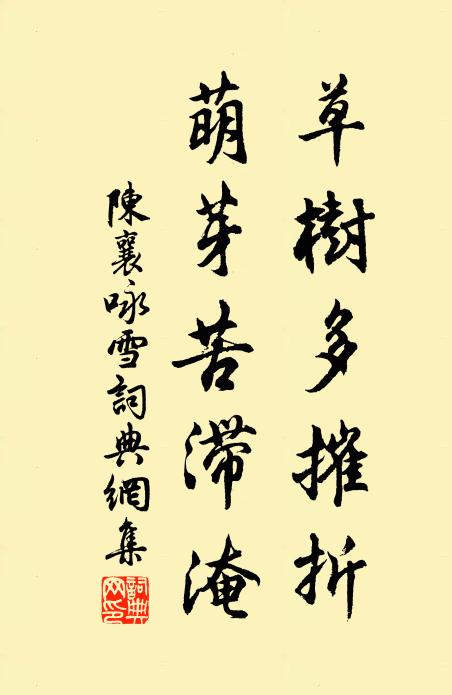 草樹多摧折
萌芽苦滞淹
陳襄咏雪詞典網集
詞典网印